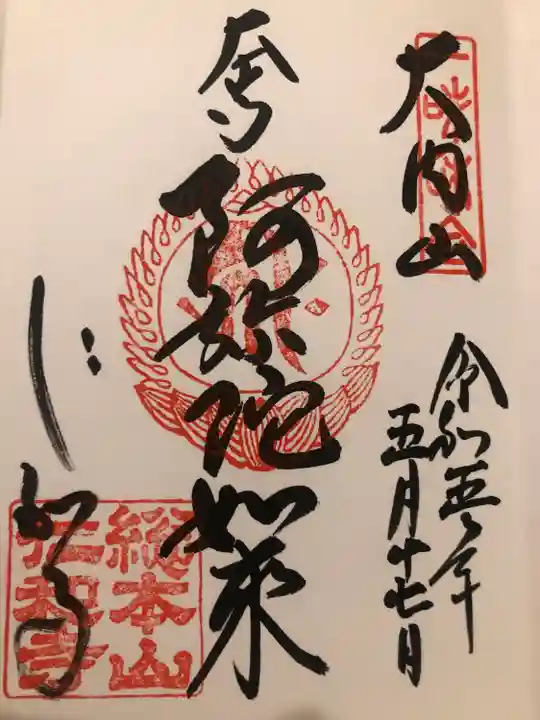 大内山
令和五年
五月十七日
奉
阿弥陀如来
総本山
仁和寺